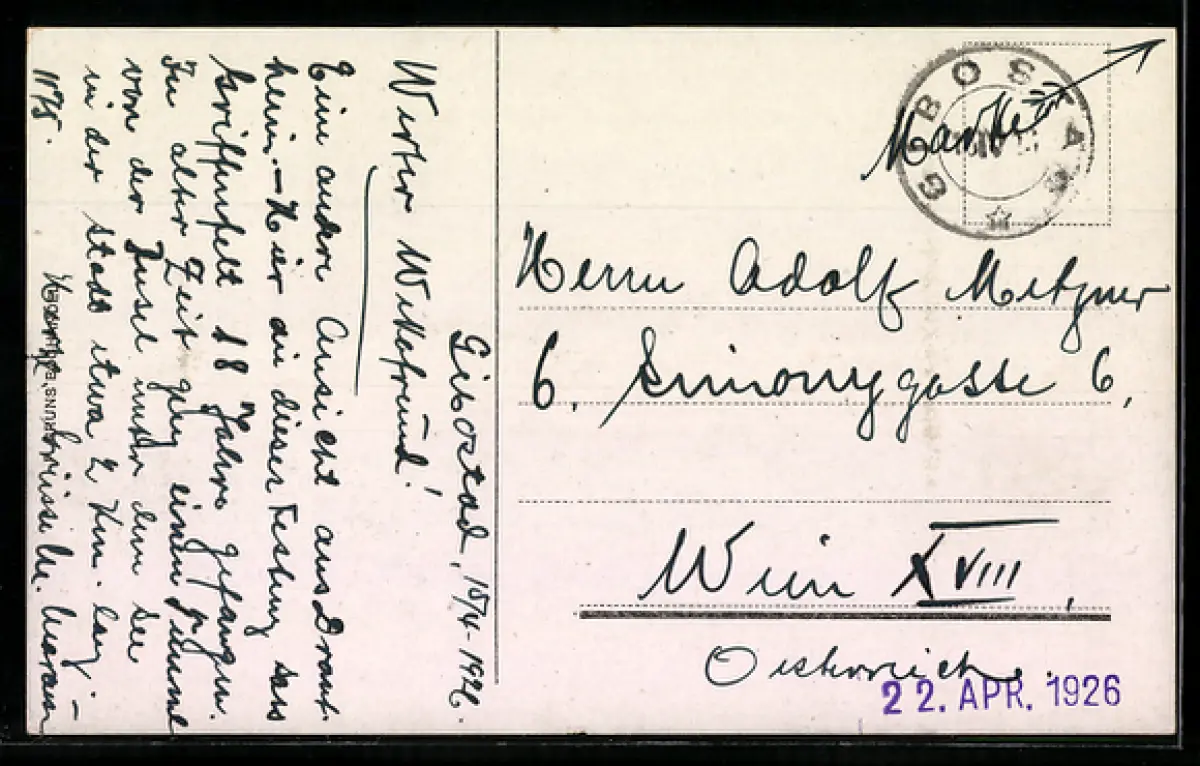 Gibostad, 15/4-1926.
Werter Weltfreund!
Eine andere Ansicht aus Dront-
heim. – Hier in dieser Festung sass
Griffenfelt 18 Jahre gefangen.
In alter Zeit ging einen Tunnel
von der Insel unter dem See
in der Stadt etwa 2 Km. lang –
1175. Herzliche Grüsse M.
GIBOSTAD
Marke
Herrn Adolf Metzner
6. Simonygasse 6,
Wien XVIII,
Oesterreich.
22. APR. 1926